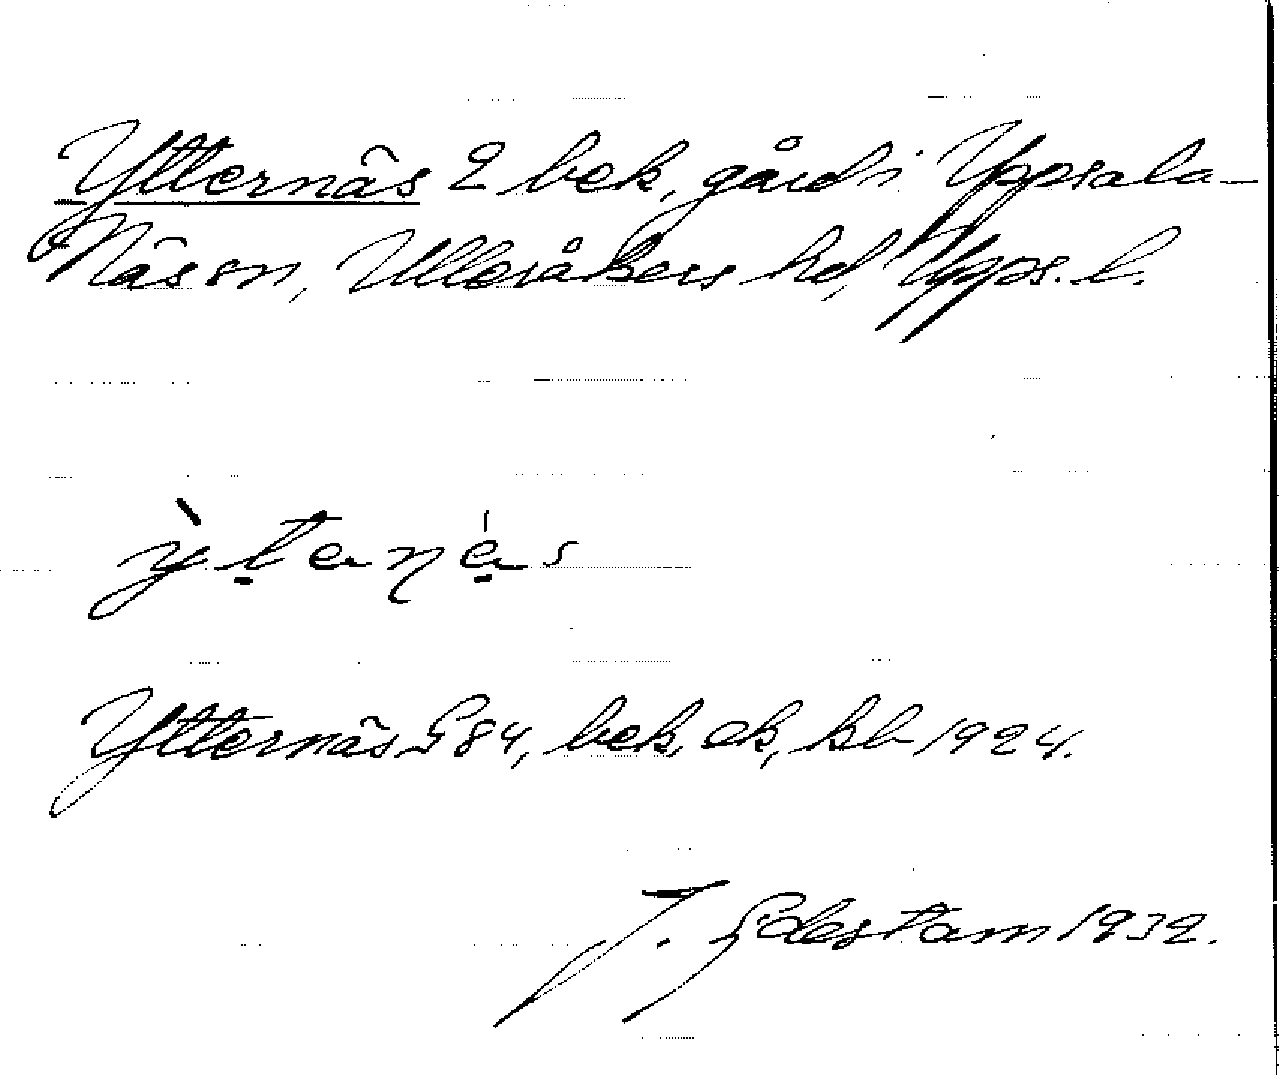 Ytternäs 2 bek. gård i Uppsala-
Näs sn, Ulleråkers hd, Upps. l.
Ytternäs G84, bek, ek, kb 1924.
J. Edestam 1932.